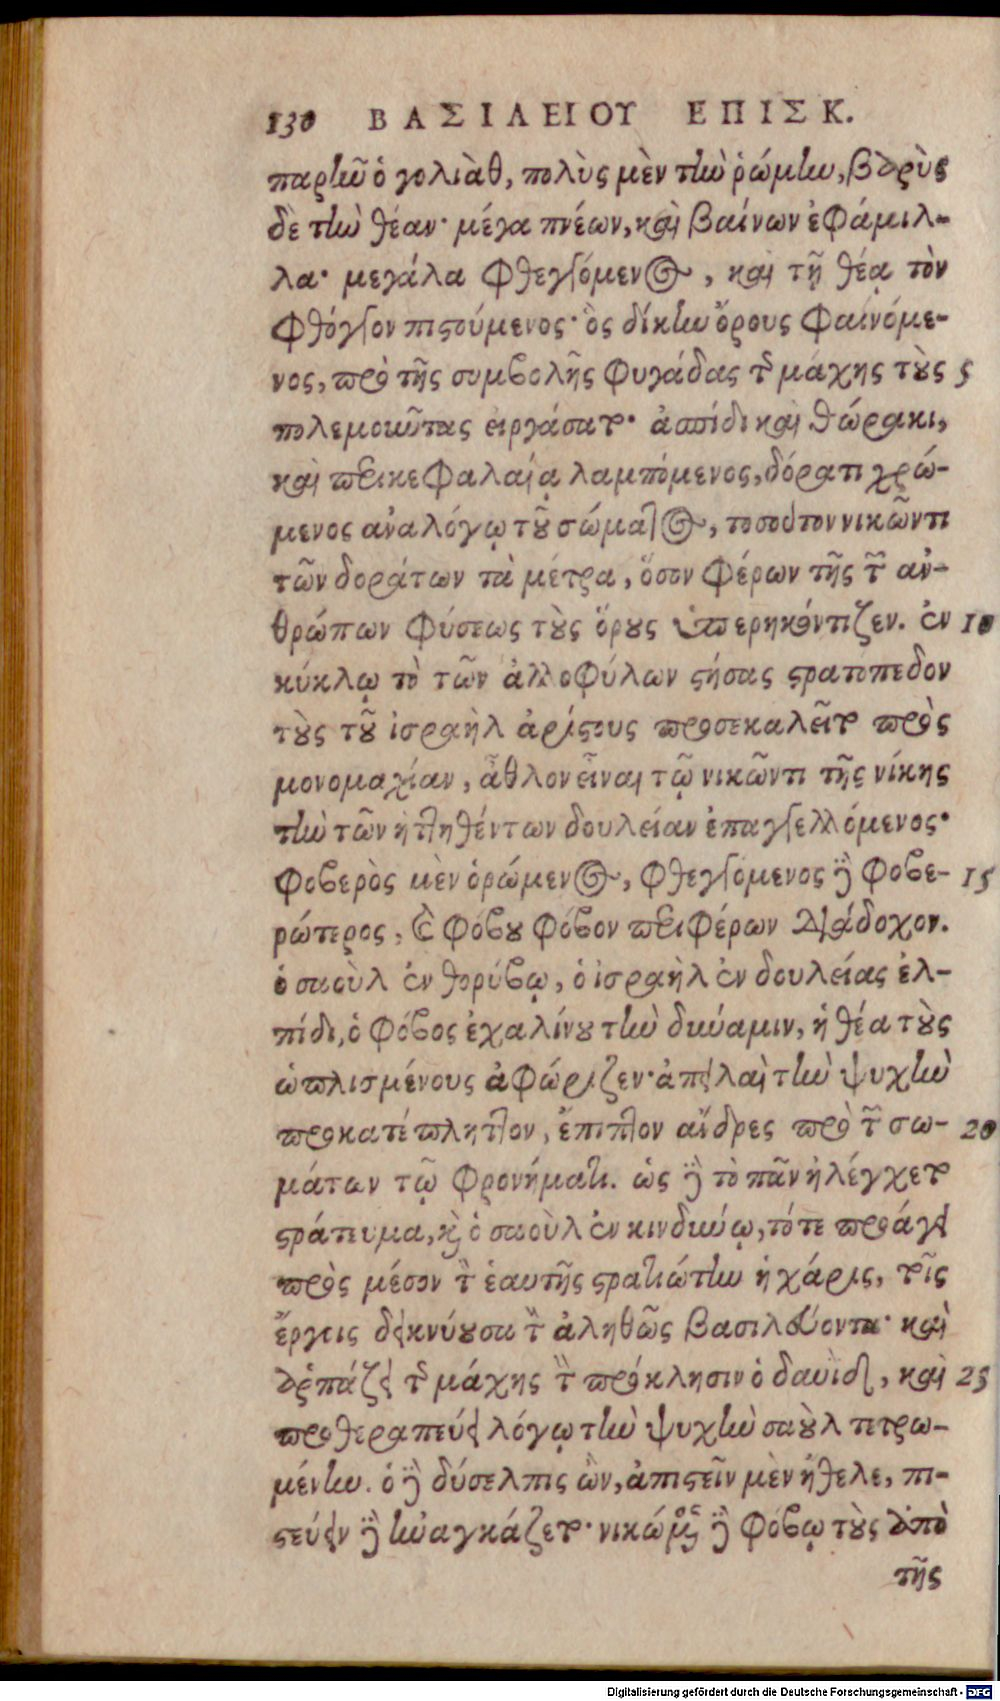 130 ΒΑΣΙΛΕΙΟΥ ΕΠΙΣΚ.
παρῆν ὁ γολιὰθ, πολὺς μὲν τὴν ῥώμην, βαρὺς
δὲ τὴν θέαν· μέγα πνέων, καὶ βαίνων ἐφάμιλ-
λα· μεγάλα φθεγγόμενος, καὶ τῇ θέᾳ τὸν
φθόγγον πιστούμενος· ὃς δίκην ὄρους φαινόμε-
νος, πρὸ τῆς συμβολῆς φυγάδας τῆς μάχης τοὺς 5
πολεμοῦντας εἰργάσατο· ἀσπίδι καὶ θώρακι,
καὶ περικεφαλαίᾳ λαμπόμενος, δόρατι χρώ-
μενος ἀναλόγῳ τοῦ σώματος, τοσοῦτον νικῶντι
τῶν δοράτων τὰ μέτρα, ὅσον φέρων τῆς τῶν ἀν-
θρώπων φύσεως τοὺς ὅρους ὑπερηκόντιζεν. ἐν 10
κύκλῳ τὸ τῶν ἀλλοφύλων στήσας στρατόπεδον
τοὺς τοῦ ἰσραὴλ ἀρίστους προσεκαλεῖτο πρὸς
μονομαχίαν, ἆθλον εἶναι τῷ νικῶντι τῆς νίκης
τὴν τῶν ἡττηθέντων δουλείαν ἐπαγγελλόμενος·
φοβερὸς μὲν ὁρώμενος, φθεγγόμενος δὲ φοβε- 15
ρώτερος, καὶ φόβου φόβον περιφέρων διάδοχον.
ὁ σαοὺλ ἐν θορύβῳ, ὁ ἰσραὴλ ἐν δουλείας ἐλ-
πίδι, ὁ φόβος ἐχαλίνου τὴν δύναμιν, ἡ θέα τοὺς
ὡπλισμένους ἀφώριζεν· ἀπειλαὶ τὴν ψυχὴν
προκατέπληττον, ἔπιπτον ἄνδρες πρὸ τῶν σω- 20
μάτων τῷ φρονήματι. ὡς δὲ τὸ πᾶν ἠλέγχετο
στράτευμα, καὶ ὁ σαοὺλ ἐν κινδύνῳ, τότε προάγει
πρὸς μέσον τὸν ἑαυτῆς στρατιώτην ἡ χάρις, τοῖς
ἔργοις δεικνύουσα τὸν ἀληθῶς βασιλεύοντα· καὶ
ἁρπάζει τῆς μάχης τὴν πρόκλησιν ὁ δαυὶδ, καὶ 25
προθεραπεύει λόγῳ τὴν ψυχὴν σαοὺλ τετρω-
μένην. ὁ δὲ δύσελπις ὢν, ἀπιστεῖν μὲν ἤθελε, πι-
στεύειν δὲ ἠναγκάζετο· νικώμενος δὲ φόβῳ τοὺς ἀπὸ
τῆς
Digitalisierung gefördert durch die Deutsche Forschungsgemeinschaft - DFG